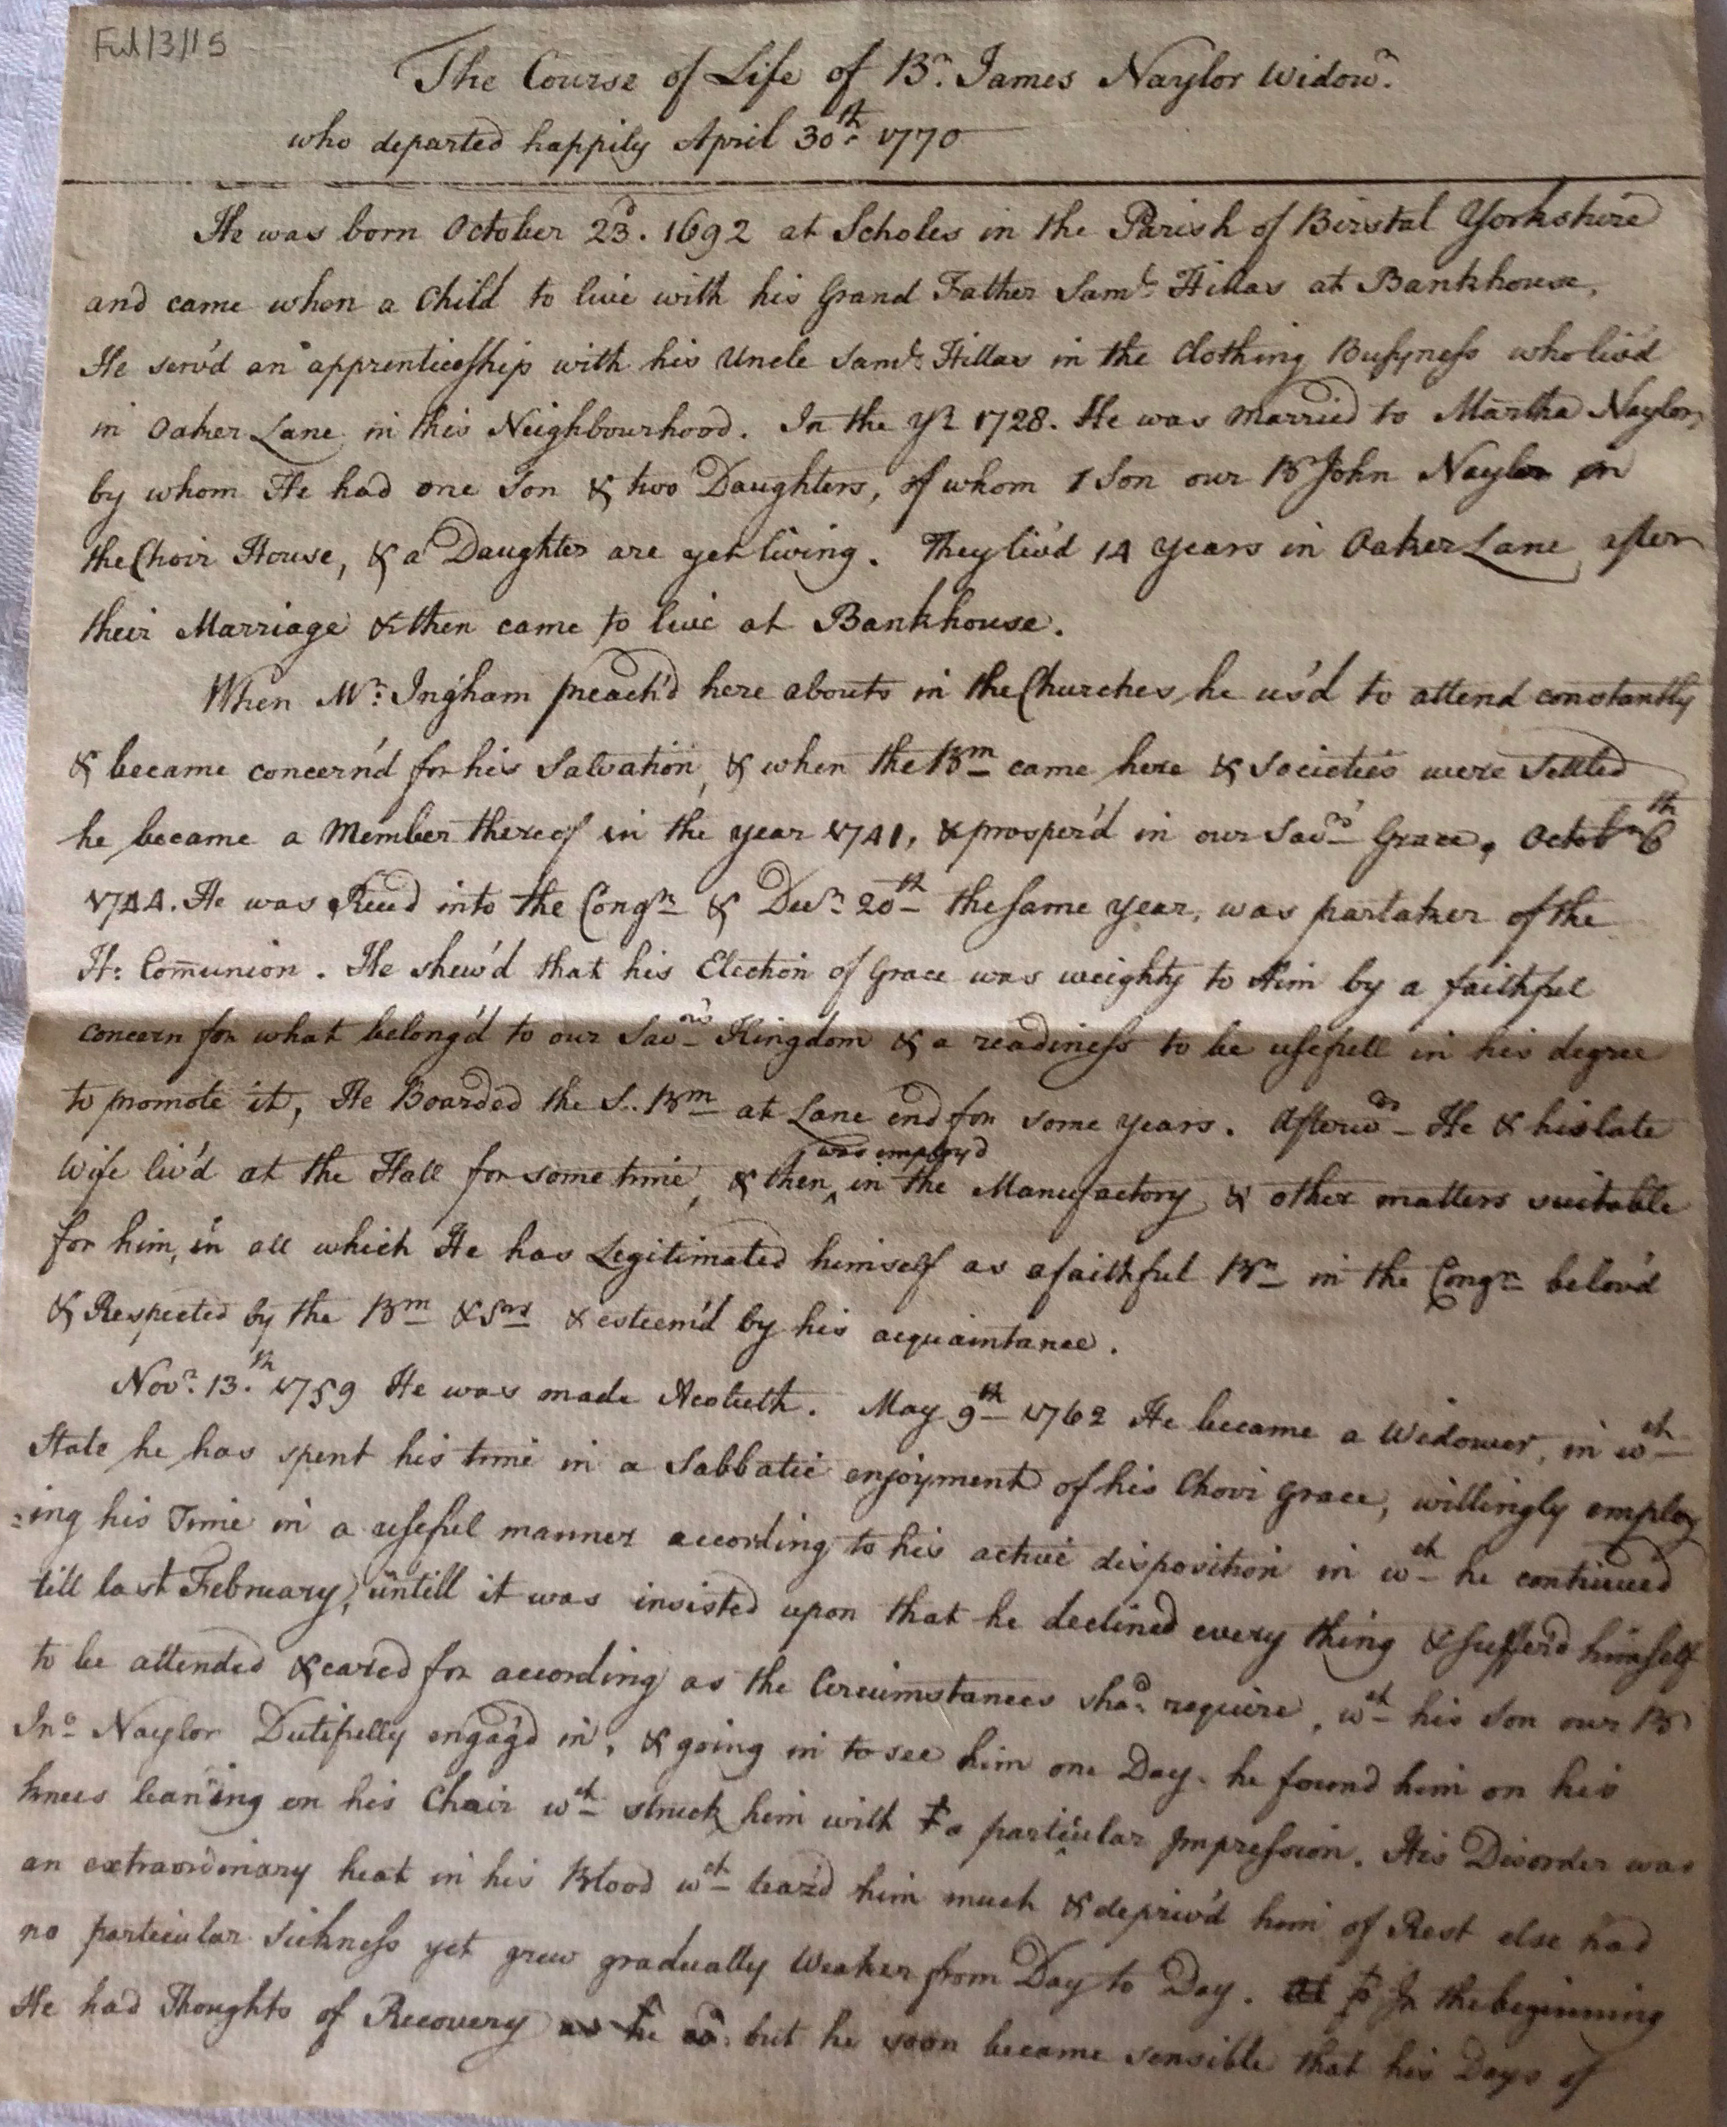 Ful/3/15
The Course of Life of Br. James Naylor Widowr.
who departed happily April 30th. 1770
He was born October 23d. 1692 at Scholes in the Parish of Birstal Yorkshire
and came when a Child to live with his Grand Father Saml. Hillas at Bankhouse,
He serv'd an apprenticeship with his Uncle Saml. Hillas in the Clothing Bussyness who liv'd
in Oaker Lane in this Neighbourhood. In the Yr. 1728. He was married to Martha Naylor,
by whom He had one Son & two Daughters, of whom 1 Son our Br John Naylor in
the Choir House, & a Daughter are yet living. They liv'd 14 Years in Oaker Lane after
their Marriage & then came to live at Bankhouse.
When Mr. Ingham preach'd here abouts in the Churches, he us'd to attend constantly
& became concern'd for his Salvation, & when the Brn came here & Societies were settled
he became a Member thereof in the year 1741, & prosper'd in our Savrs' Grace, Octobr 6th
1744. He was Recd into the Congn & Decr. 20th the same year, was partaker of the
H: Comunion. He shew'd that his Election of Grace was weighty to Him by a faithful
concern for what belong'd to our Savrs Kingdom & a readiness to be usefull in his degree
to promote it, He Boarded the S.. Brn at Lane end for some years. Afterwds He & his late
Wife liv'd at the Hall for some time, & then ^ was employd in the Manufactory & other matters suitable
for him, in all which He has Legitimated himself as a faithful Br in the Congn belov'd
& Respected by the Brn & Srs & esteem'd by his acquaintance.
Novr. 13.th 1759 He was made Acoluth. May 9th 1762 He became a Widower, in wch
State he has spent his time in a Sabbatic enjoyment of his Choir Grace, willingly employ
=ing his Time in a useful manner according to his active disposition in wch he continued
till last February, untill it was insisted upon that he declined every thing & suffer'd himself
to be attended & cared for according as the Circumstances shod. require, wch his Son our Br
Jno Naylor Dutifully engag'd in, & going in to see him one Day. he found him on his
knees leaning on his Chair wch struck him with a particular Impression. His Disorder was
an extraordinary heat in his Blood wch teaz'd him much & depriv'd him of Rest else had
no particular Sickness yet grew gradually Weaker from Day to Day. In the beginning
He had Thoughts of Recovery but he soon became sensible that his Days of